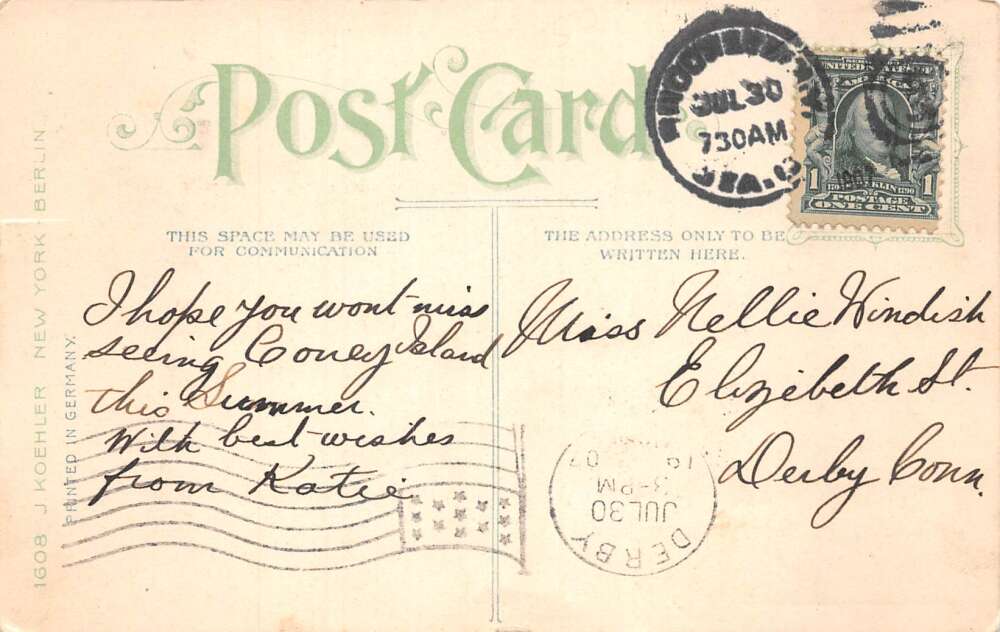 Post Card
JUL 30
730AM
STA.
SERIES 1902
UNITED STATES OF
AMERICA
1907
1
FRANKLIN 1790
1
POSTAGE
ONE CENT
THIS SPACE MAY BE USED
FOR COMMUNICATION
THE ADDRESS ONLY TO BE
WRITTEN HERE.
I hope you wont miss
seeing Coney Island
this Summer.
With best wishes
from Katie
Miss Nellie Windish
Elizebeth St.
Derby Conn.
DERBY
JUL 30
3-PM
19 07
1608 J KOEHLER NEW YORK - BERLIN
PRINTED IN GERMANY.